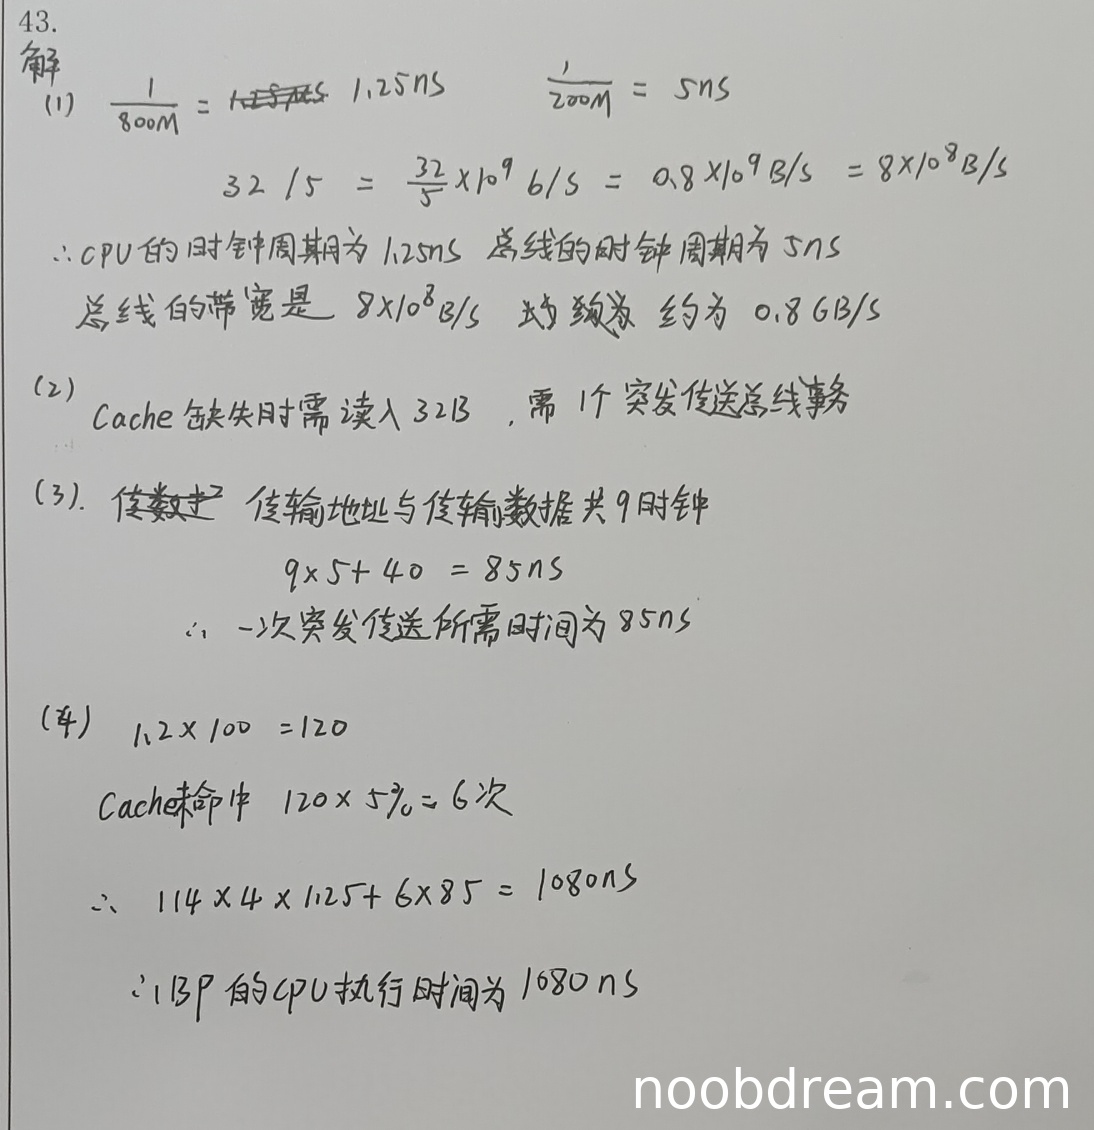 43.
解
(1) 1/800M = 1.25ns 1/200M = 5ns
32 / 5 = 32/5 ×10⁹ b/s = 0.8×10⁹B/s = 8×10⁸B/s
∴CPU的时钟周期为1.25ns 总线的时钟周期为5ns
总线的带宽是 8×10⁸B/s 约为 0.8GB/s
(2) Cache缺失时需读入32B，需1个突发传送总线事务
(3). 传输地址与传输数据共9时钟
9×5+40 = 85ns
∴ 一次突发传送所需时间为85ns
(4) 1.2×100 =120
Cache未命中 120×5%=6次
∴ 114×4×1.25+6×85 = 1080ns
∴ BP的CPU执行时间为1080ns
noobdream.com